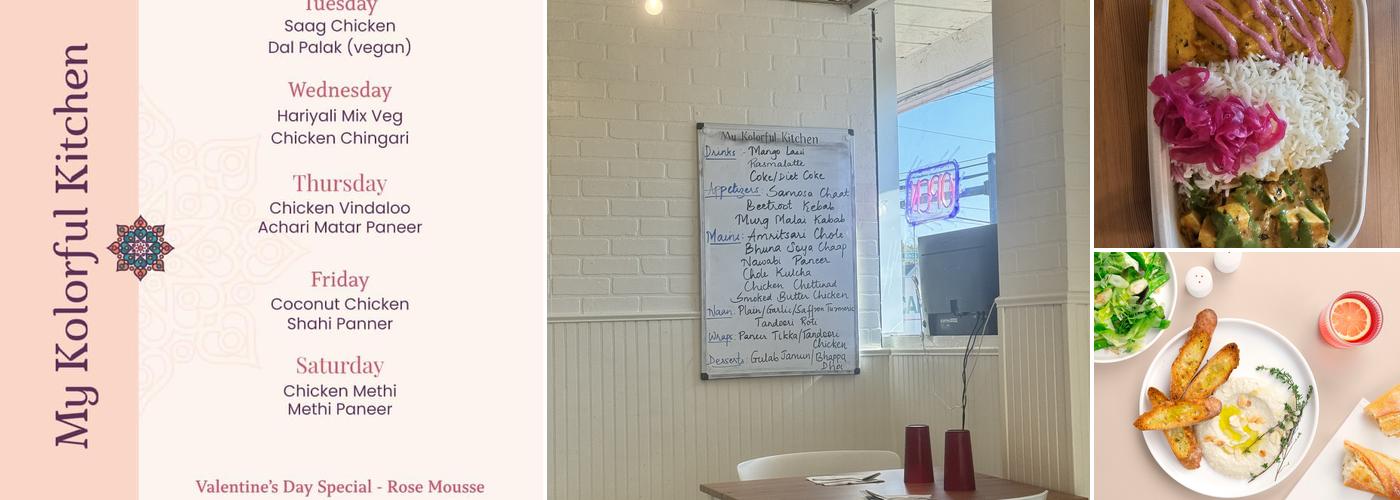 My Kolorful Kitchen
Tuesday
Saag Chicken
Dal Palak (vegan)
Wednesday
Hariyali Mix Veg
Chicken Chingari
Thursday
Chicken Vindaloo
Achari Matar Paneer
Friday
Coconut Chicken
Shahi Panner
Saturday
Chicken Methi
Methi Paneer
Valentine's Day Special - Rose Mousse
My Kolorful Kitchen
Drinks :- Mango Lassi
Rasmalatte
Coke/Diet Coke
Appetizers: Samosa Chaat
Beetroot Kebab
Murg Malai Kabab
Mains: Amritsari Chole
Bhuna Soya Chaap
Nawabi Paneer
Chole Kulcha
Chicken Chettinad
Smoked Butter Chicken
Naan: Plain/Garlic/Saffron Turmeric
Tandoori Roti
Wraps: Paneer Tikka/Tandoori
Chicken
Desserts: Gulab Jamun/Bhappa
Dhoi
OPEN